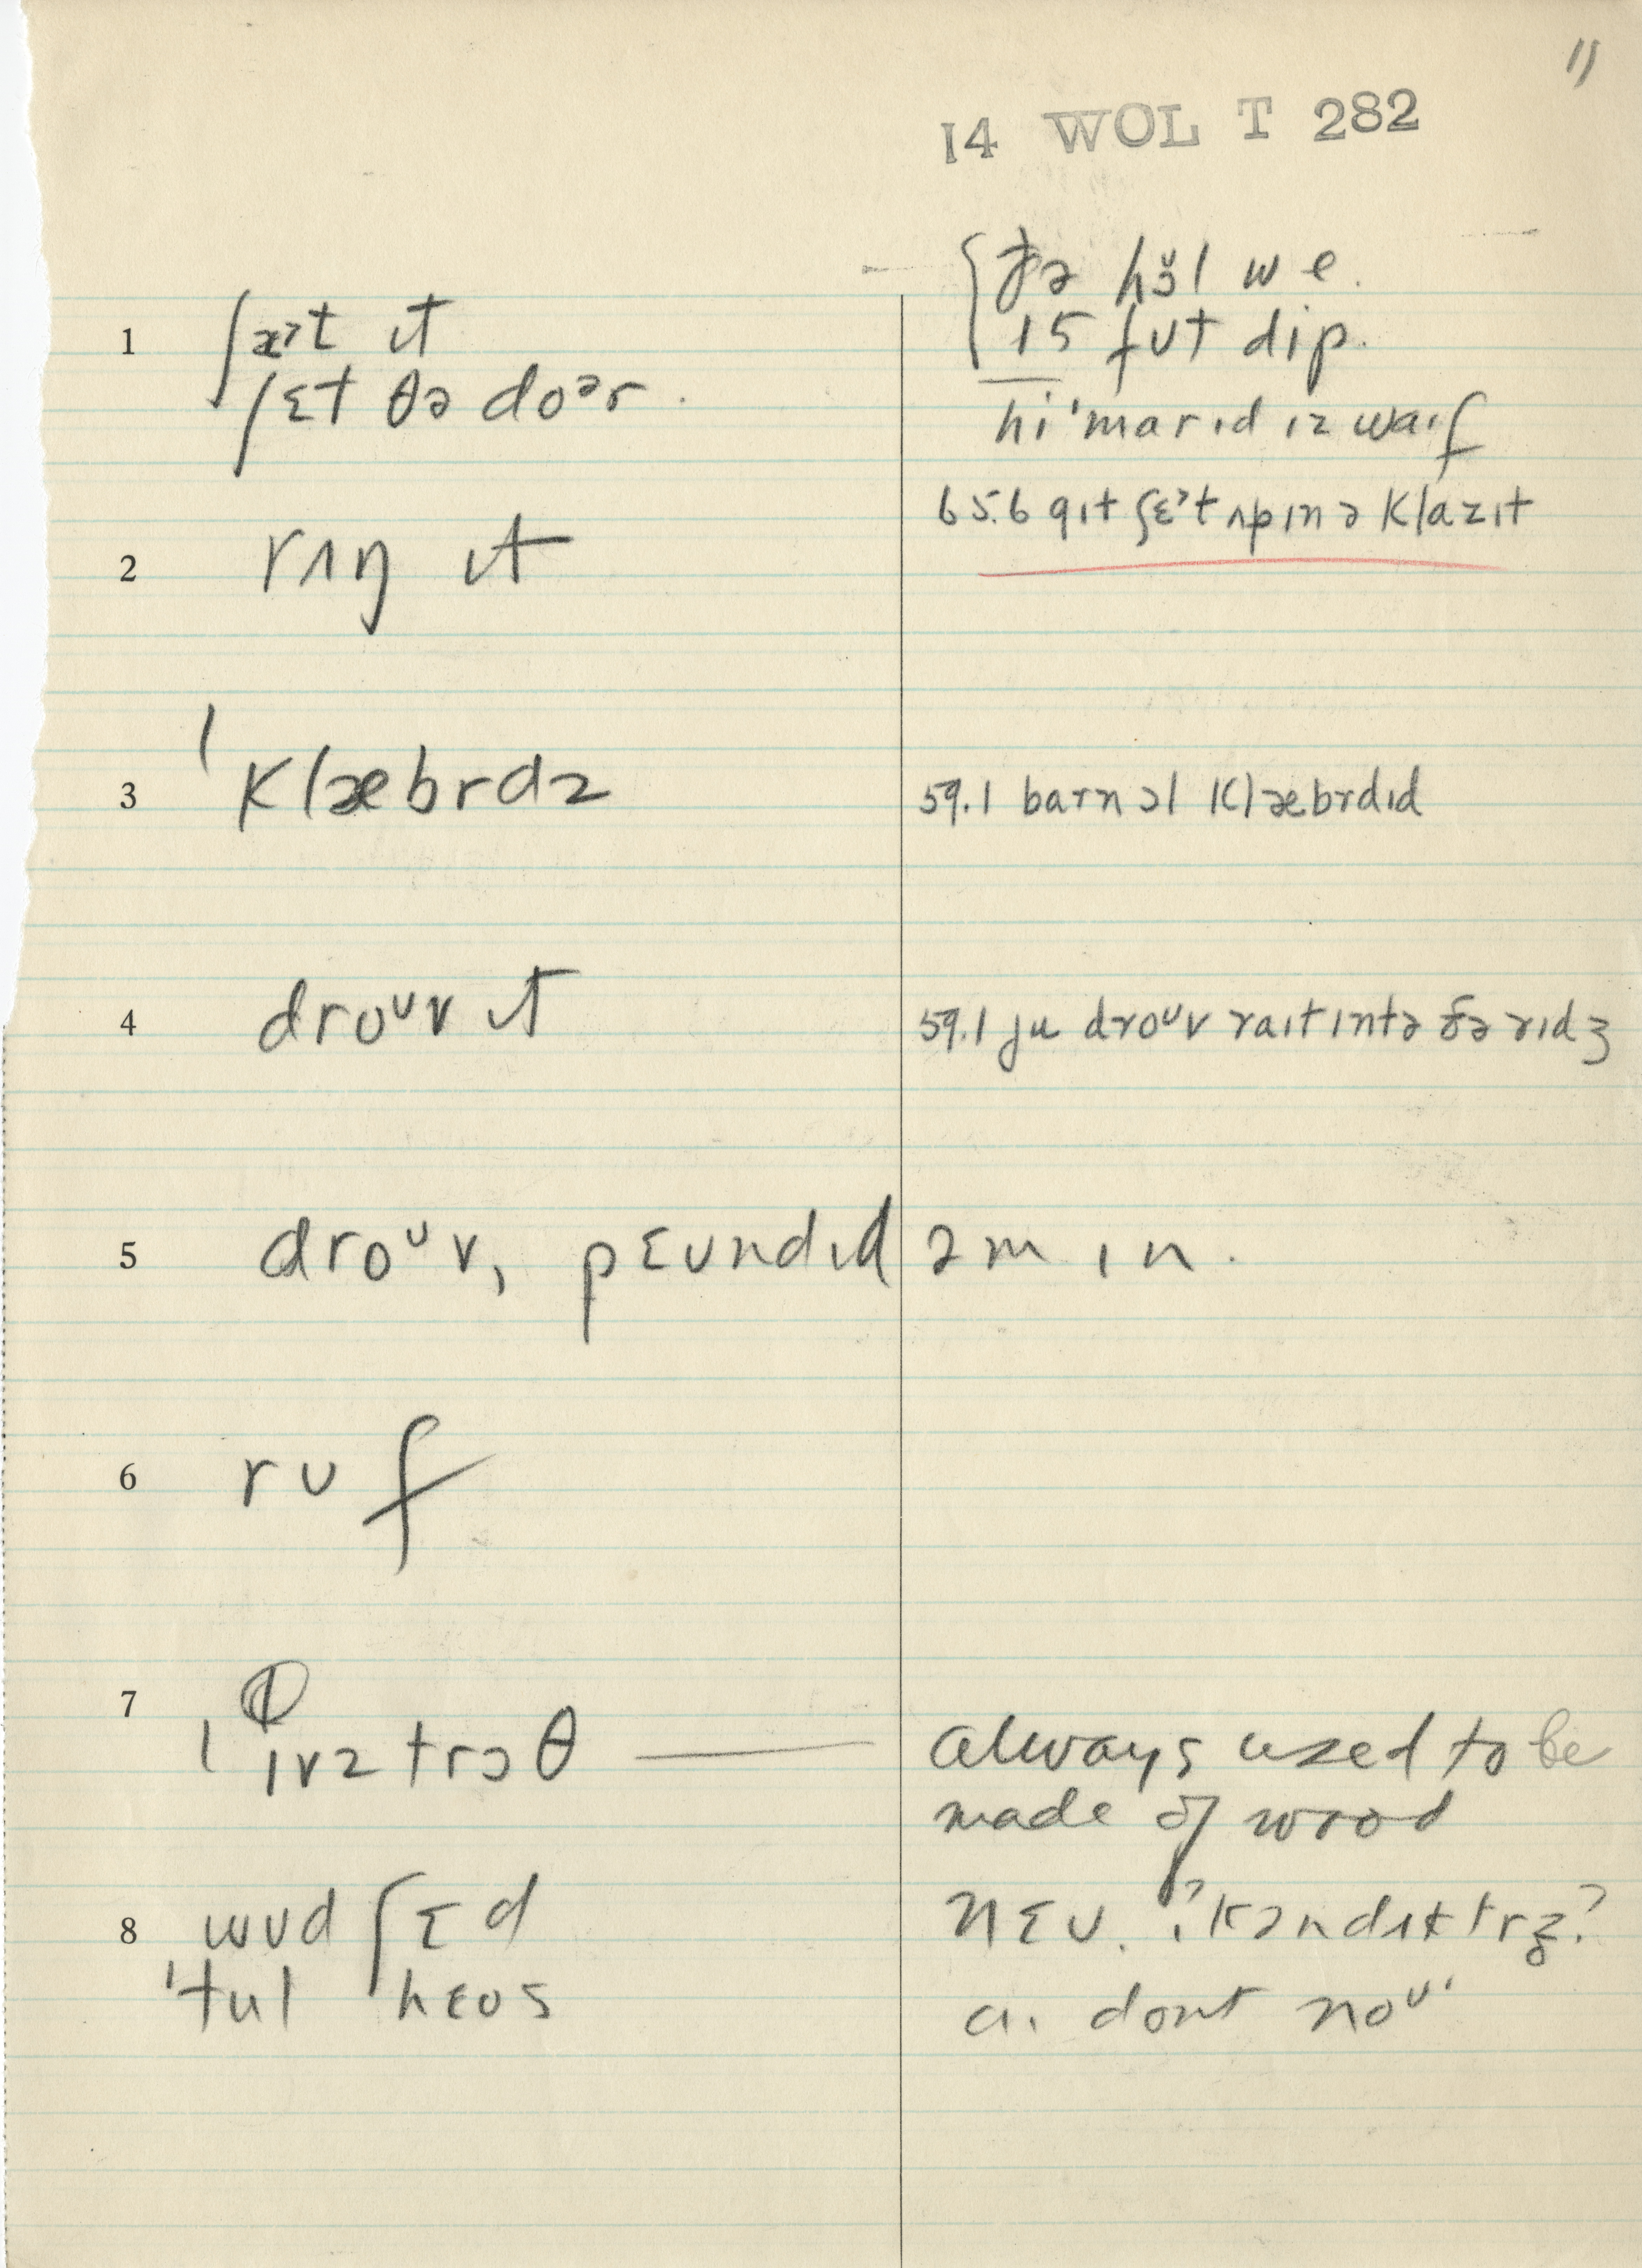 11
14 WOL T 282
ðə hɜ̆l we.
15 fʊt dip.
1 ʃæᵊt ɪt
ʃɛt θə doᵊr.
hi 'marɪd ɪz waɪf
65.6 gɪt ʃɛᵊt ʌp ɪn ə klazɪt
2 rʌŋ ɪt
3 'klæbrdz
59.1 barn ɔl klæbrdɪd
4 droᶷv ɪt
59.1 ju droᶷv raɪt ɪntə ðə rɪdʒ
5 droᶷv, pɛʊndɪd əm ɪn.
6 rʊf
7 'ɪvztrɔθ — always used to be
made of wood
8 wʊd ʃɛd
nɛʊ. 'kəndʌktrz?
'tul hɛʊs
aɪ dont noᶷ